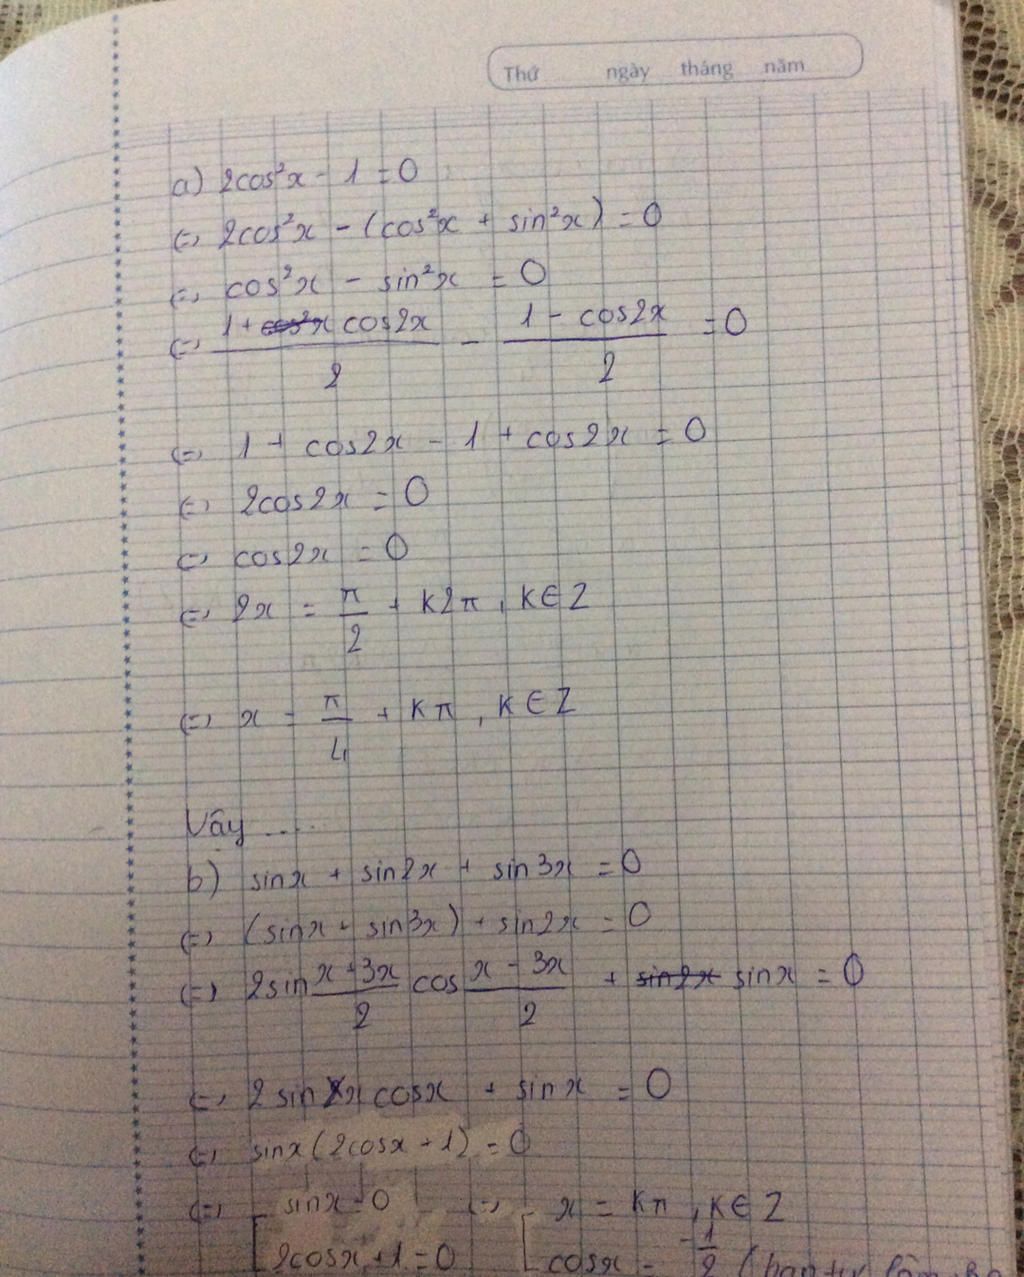 Thứ ngày tháng năm
a) 2cos²x - 1 = 0
(=) 2cos²x - (cos²x + sin²x) = 0
(=) cos²x - sin²x = 0
(=) (1 + cos2x)/2 - (1 - cos2x)/2 = 0
(=) 1 + cos2x - 1 + cos2x = 0
(=) 2cos2x = 0
(=) cos2x = 0
(=) 2x = π/2 + k2π, k∈Z
(=) x = π/4 + kπ, k∈Z
Vậy ....
b) sinx + sin2x + sin3x = 0
(=) (sinx + sin3x) + sin2x = 0
(=) 2sin (x+3x)/2 cos (x-3x)/2 + sinx = 0
(=) 2sinx cosx + sinx = 0
(=) sinx(2cosx + 1) = 0
(=) [ sinx = 0 (=) [ x = kπ, k∈Z
2cosx + 1 = 0 cosx = -1/2 (bạn tự